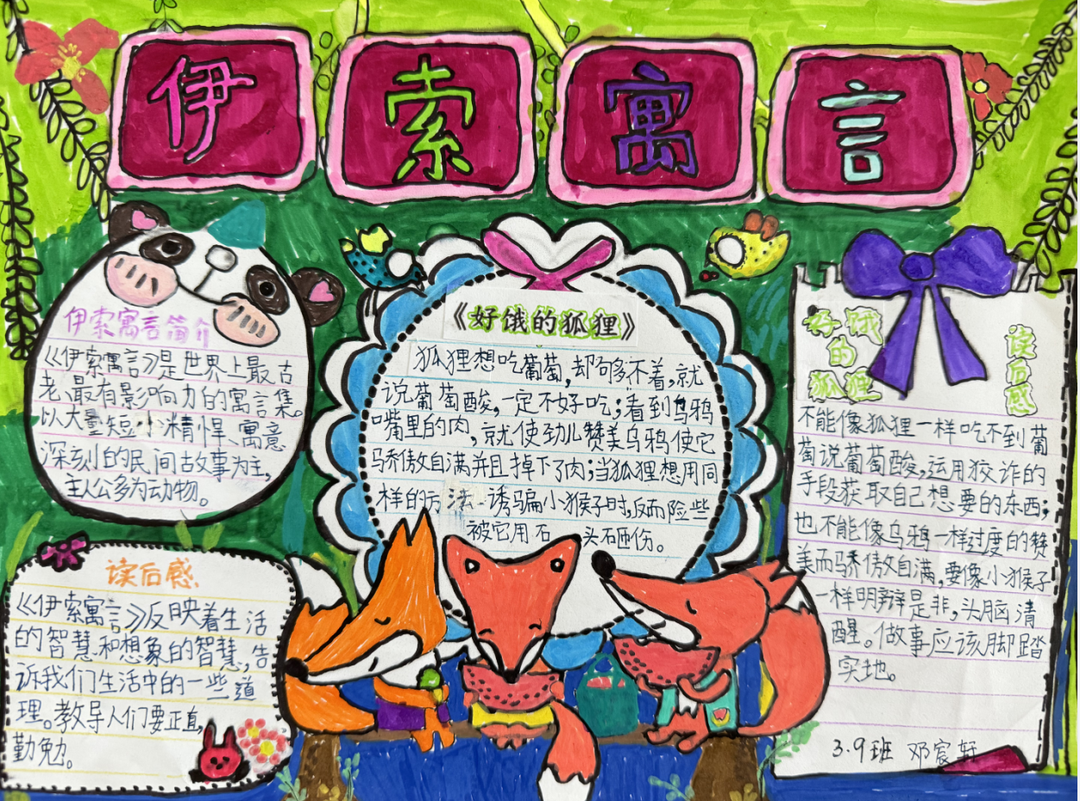 伊索寓言
伊索寓言简介
《伊索寓言》是世界上最古
老、最有影响力的寓言集。
以大量短小精悍、寓意
深刻的民间故事为主,
主人公多为动物。
《好饿的狐狸》
狐狸想吃葡萄,却够不着,就
说葡萄酸,一定不好吃;看到乌鸦
嘴里的肉,就使劲儿赞美乌鸦使它
骄傲自满并且掉下了肉;当狐狸想用同
样的方法诱骗小猴子时,反而险些
被它用石头砸伤。
好饿
的
狐狸
读后感
不能像狐狸一样吃不到葡
萄说葡萄酸,运用狡诈的
手段获取自己想要的东西;
也不能像乌鸦一样过度的赞
美而骄傲自满,要像小猴子
一样明辩是非,头脑清
醒。做事应该脚踏
实地。
3.9班 邓宸轩
读后感
《伊索寓言》反映着生活
的智慧和想象的智慧,告
诉我们生活中的一些道
理。教导人们要正直,
勤勉。